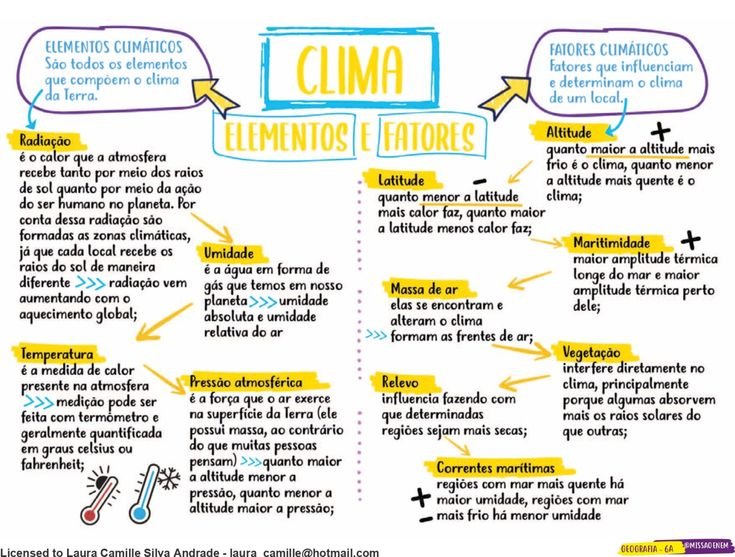 ELEMENTOS CLIMÁTICOS
São todos os elementos
que compõem o clima
da Terra.
CLIMA
ELEMENTOS E FATORES
FATORES CLIMÁTICOS
Fatores que influenciam
e determinam o clima
de um local.
Radiação
é o calor que a atmosfera
recebe tanto por meio dos raios
de sol quanto por meio da ação
do ser humano no planeta. Por
conta dessa radiação são
formadas as zonas climáticas,
já que cada local recebe os
raios do sol de maneira
diferente >>> radiação vem
aumentando com o
aquecimento global;
Umidade
é a água em forma de
gás que temos em nosso
planeta >>> umidade
absoluta e umidade
relativa do ar
Temperatura
é a medida de calor
presente na atmosfera
>>> medição pode ser
feita com termômetro e
geralmente quantificada
em graus celsius ou
fahrenheit;
Pressão atmosférica
é a força que o ar exerce
na superfície da Terra (ele
possui massa, ao contrário
do que muitas pessoas
pensam) >>> quanto maior
a altitude menor a
pressão, quanto menor a
altitude maior a pressão;
Altitude +
quanto maior a altitude mais
frio é o clima, quanto menor
a altitude mais quente é o
clima;
Latitude -
quanto menor a latitude
mais calor faz, quanto maior
a latitude menos calor faz;
Maritimidade +
maior amplitude térmica
longe do mar e maior
amplitude térmica perto
dele;
Massa de ar
elas se encontram e
alteram o clima
>>> formam as frentes de ar;
Vegetação
interfere diretamente no
clima, principalmente
porque algumas absorvem
mais os raios solares do
que outras;
Relevo
influencia fazendo com
que determinadas
regiões sejam mais secas;
Correntes marítimas
regiões com mar mais quente há
+ maior umidade, regiões com mar
- mais frio há menor umidade
GEOGRAFIA - 6A @MISSAOENEM
Licensed to Laura Camille Silva Andrade - laura_camille@hotmail.com